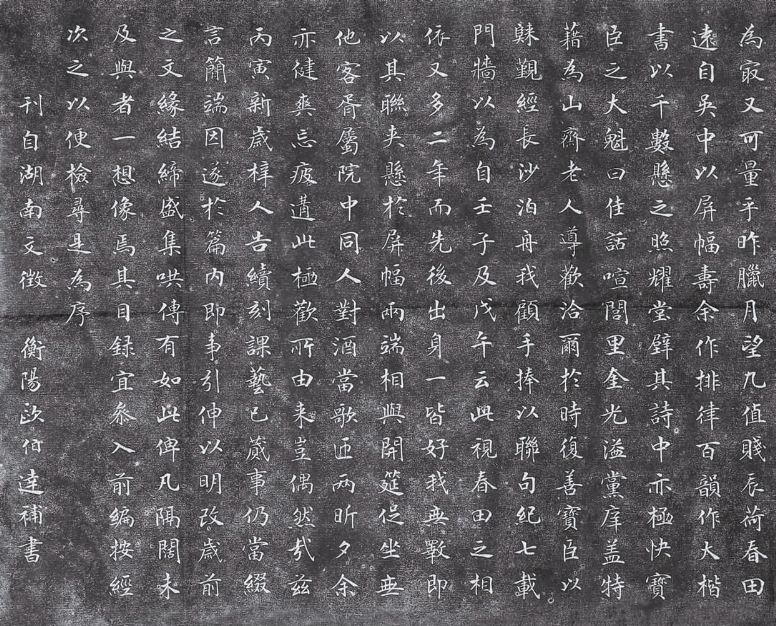 為寂又可量乎昨臘月望九值賤辰荷春田
遠自吳中以屏幅壽余作排律百韻作大楷
書以千數懸之照耀堂壁其詩中亦極快寶
臣之大魁曰佳話喧閭里金光溢黨庠蓋特
藉為山齊老人導歡洽爾於時復善寶臣以
覲經長沙泊舟我顧手捧以聯句紀七載
門牆以為自壬子及戊午云此視春田之相
依又多二年而先後出身一皆好我無斁即
以其聯夾懸於屏幅兩端相與開筵促坐無
他客胥屬院中同人對酒當歌匝兩昕夕余
亦健爽忘疲遘此極歡所由来豈偶然哉茲
丙寅新歲梓人告續刻課藝已蕆事仍當綴
言簡端因遂於篇內即事引伸以明改歲前
之文緣結締盛集哄傳有如此俾凡隔闊未
及與者一想像焉其目録宜叅入前編按經
次之以便檢尋是為序
刊自湖南文徵　衡陽歐伯達補書